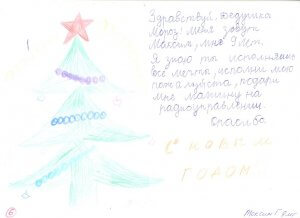 Здравствуй, Дедушка
Мороз! Меня зовут
Максим, мне 9 лет.
Я знаю ты исполняешь
все мечты, исполни мою
пожалуйста, подари
мне машину на
радиоуправлении.
Спасибо
С НОВЫМ
ГОДОМ!
6
Максим Г. 9 лет